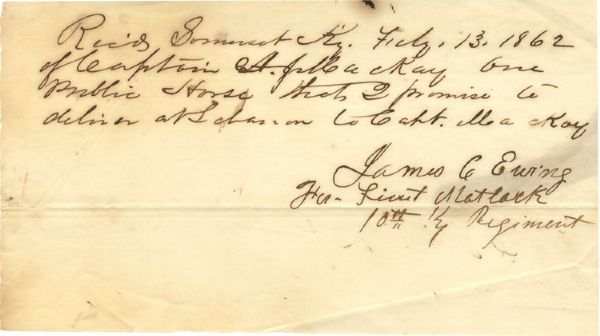 Recd, Somerset Ky. Feby. 13. 1862
of Captain A. J. Mackay One
Public Horse that I promise to
deliver at Lebanon to Capt. Mackay
James C Ewing
For Lieut Matlock
10th Ky Regiment